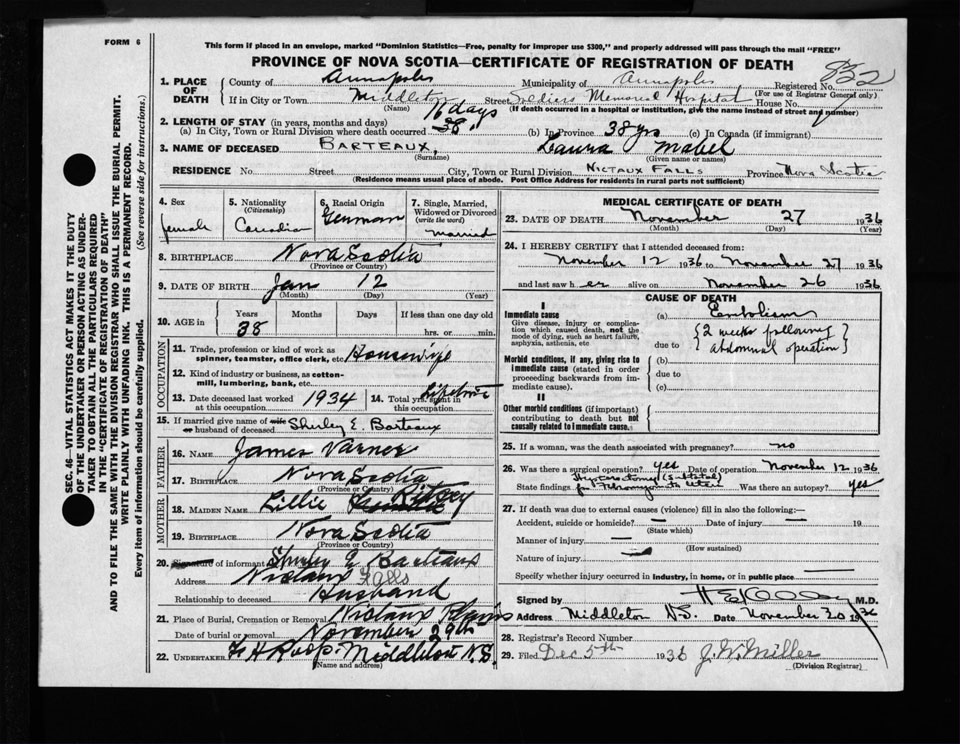 FORM 6
This form if placed in an envelope, marked "Dominion Statistics—Free, penalty for improper use $300," and properly addressed will pass through the mail "FREE"
PROVINCE OF NOVA SCOTIA—CERTIFICATE OF REGISTRATION OF DEATH
1. PLACE OF DEATH
County of Annapolis Municipality of Annapolis Registered No. 852
(For use of Registrar General only)
If in City or Town Middleton Street Soldiers Memorial Hospital House No.
(Name) (If death occurred in a hospital or institution, give the name instead of street and number)
2. LENGTH OF STAY (in years, months and days) 16 days
(a) In City, Town or Rural Division where death occurred 38 " (b) In Province 38 yrs (c) In Canada (if immigrant)
3. NAME OF DECEASED BARTEAUX, Laura Mabel
(Surname) (Given name or names)
RESIDENCE No. Street City, Town or Rural Division NICTAUX FALLS Province Nova Scotia
(Residence means usual place of abode. Post Office Address for residents in rural parts not sufficient)
SEC. 46—VITAL STATISTICS ACT MAKES IT THE DUTY
OF THE UNDERTAKER OR PERSON ACTING AS UNDER-
TAKER TO OBTAIN ALL THE PARTICULARS REQUIRED
IN THE "CERTIFICATE OF REGISTRATION OF DEATH"
AND TO FILE THE SAME WITH THE DIVISION REGISTRAR WHO SHALL ISSUE THE BURIAL PERMIT.
WRITE PLAINLY WITH UNFADING INK. THIS IS A PERMANENT RECORD.
Every item of information should be carefully supplied. (See reverse side for instructions.)
4. Sex female
5. Nationality (Citizenship) Canadian
6. Racial Origin German
7. Single, Married, Widowed or Divorced (write the word) married
8. BIRTHPLACE Nova Scotia
(Province or Country)
9. DATE OF BIRTH Jan 12
(Month) (Day) (Year)
10. AGE in Years 38 Months Days If less than one day old
hrs. or min.
OCCUPATION
11. Trade, profession or kind of work as
spinner, teamster, office clerk, etc. Housewife
12. Kind of industry or business, as cotton-
mill, lumbering, bank, etc.
13. Date deceased last worked at this occupation 1934 14. Total yrs. spent in this occupation Lifetime
15. If married give name of wife or husband of deceased Shirley E. Barteaux
FATHER
16. Name James Varner
17. Birthplace Nova Scotia
(Province or Country)
MOTHER
18. MAIDEN NAME Lillie
19. BIRTHPLACE Nova Scotia
(Province or Country)
20. Signature of informant Shirley E Barteaux
Address Nictaux Falls
Relationship to deceased Husband
21. Place of Burial, Cremation or Removal Nictaux
Date of burial or removal November 29th
22. UNDERTAKER Middleton N.S.
(Name and address)
MEDICAL CERTIFICATE OF DEATH
23. DATE OF DEATH November 27 1936
(Month) (Day) (Year)
24. I HEREBY CERTIFY that I attended deceased from:
November 12 1936 to November 27 1936
and last saw h er alive on November 26 1936
CAUSE OF DEATH
I
Immediate cause
Give disease, injury or complica-
tion which caused death, not the
mode of dying, such as heart failure,
asphyxia, asthenia, etc
(a) Embolism
due to {2 weeks following
abdominal operation}
Morbid conditions, if any, giving rise to
immediate cause (stated in order
proceeding backwards from im-
mediate cause).
(b)
due to
(c)
II
Other morbid conditions (if important)
contributing to death but not
causally related to immediate cause.
25. If a woman, was the death associated with pregnancy? no
26. Was there a surgical operation? yes Date of operation November 12 1936
State findings Hysterectomy (subtotal) for Fibromyomata Uteri Was there an autopsy? yes
27. If death was due to external causes (violence) fill in also the following:—
Accident, suicide or homicide? — Date of injury — 19
(State which)
Manner of injury —
(How sustained)
Nature of injury —
Specify whether injury occurred in industry, in home, or in public place —
Signed by M.D.
Address Middleton N.S. Date November 30 1936
28. Registrar's Record Number
29. Filed Dec 5th 1936 J. W. Miller
(Division Registrar)